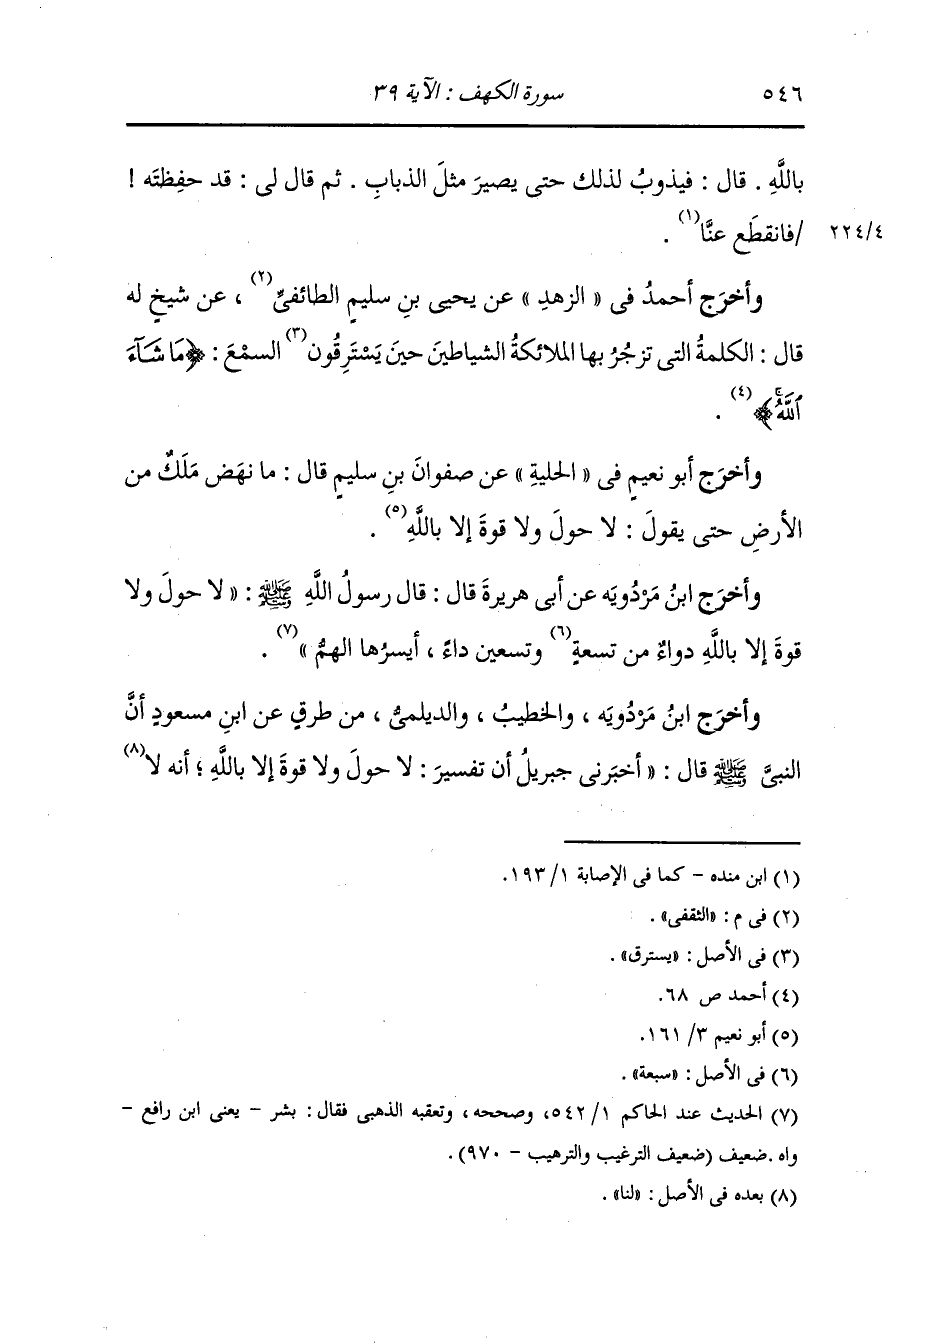 ٥٤٦ سورة الكهف : الآية ٣٩
باللَّهِ . قال : فيذوبُ لذلك حتى يصيرَ مثلَ الذبابِ . ثم قال لى : قد حفِظتَه !
٢٢٤/٤ /فانقطَع عنَّا(١) .
وأخرَج أحمدُ فى « الزهدِ » عن يحيى بنِ سليمٍ الطائفىِّ(٢) ، عن شيخٍ له
قال : الكلمةُ التى تزجُرُ بها الملائكةُ الشياطينَ حينَ يَسْتَرِقُون(٣) السمْعَ : ﴿مَا شَآءَ
ٱللَّهُۚ﴾(٤) .
وأخرَج أبو نعيمٍ فى « الحليةِ » عن صفوانَ بنِ سليمٍ قال : ما نهَض مَلَكٌ من
الأرضِ حتى يقولَ : لا حولَ ولا قوةَ إلا باللَّهِ(٥) .
وأخرَج ابنُ مَرْدُويَه عن أبى هريرةَ قال : قال رسولُ اللَّهِ ﷺ : « لا حولَ ولا
قوةَ إلا باللَّهِ دواءٌ من تسعةٍ(٦) وتسعين داءً ، أيسرُها الهمُّ »(٧) .
وأخرَج ابنُ مَرْدُويَه ، والخطيبُ ، والديلمىُّ ، من طرقٍ عن ابنِ مسعودٍ أنَّ
النبىَّ ﷺ قال : « أخبَرنى جبريلُ أن تفسيرَ : لا حولَ ولا قوةَ إلا باللَّهِ ؛ أنه لا(٨)
(١) ابن منده - كما فى الإصابة ١/ ١٩٣.
(٢) فى م : «الثقفى» .
(٣) فى الأصل : «يسترق» .
(٤) أحمد ص ٦٨.
(٥) أبو نعيم ٣/ ١٦١.
(٦) فى الأصل : «سبعة» .
(٧) الحديث عند الحاكم ١/ ٥٤٢، وصححه، وتعقبه الذهبى فقال: بشر - يعنى ابن رافع -
واه .ضعيف (ضعيف الترغيب والترهيب - ٩٧٠).
(٨) بعده فى الأصل : «لنا» .